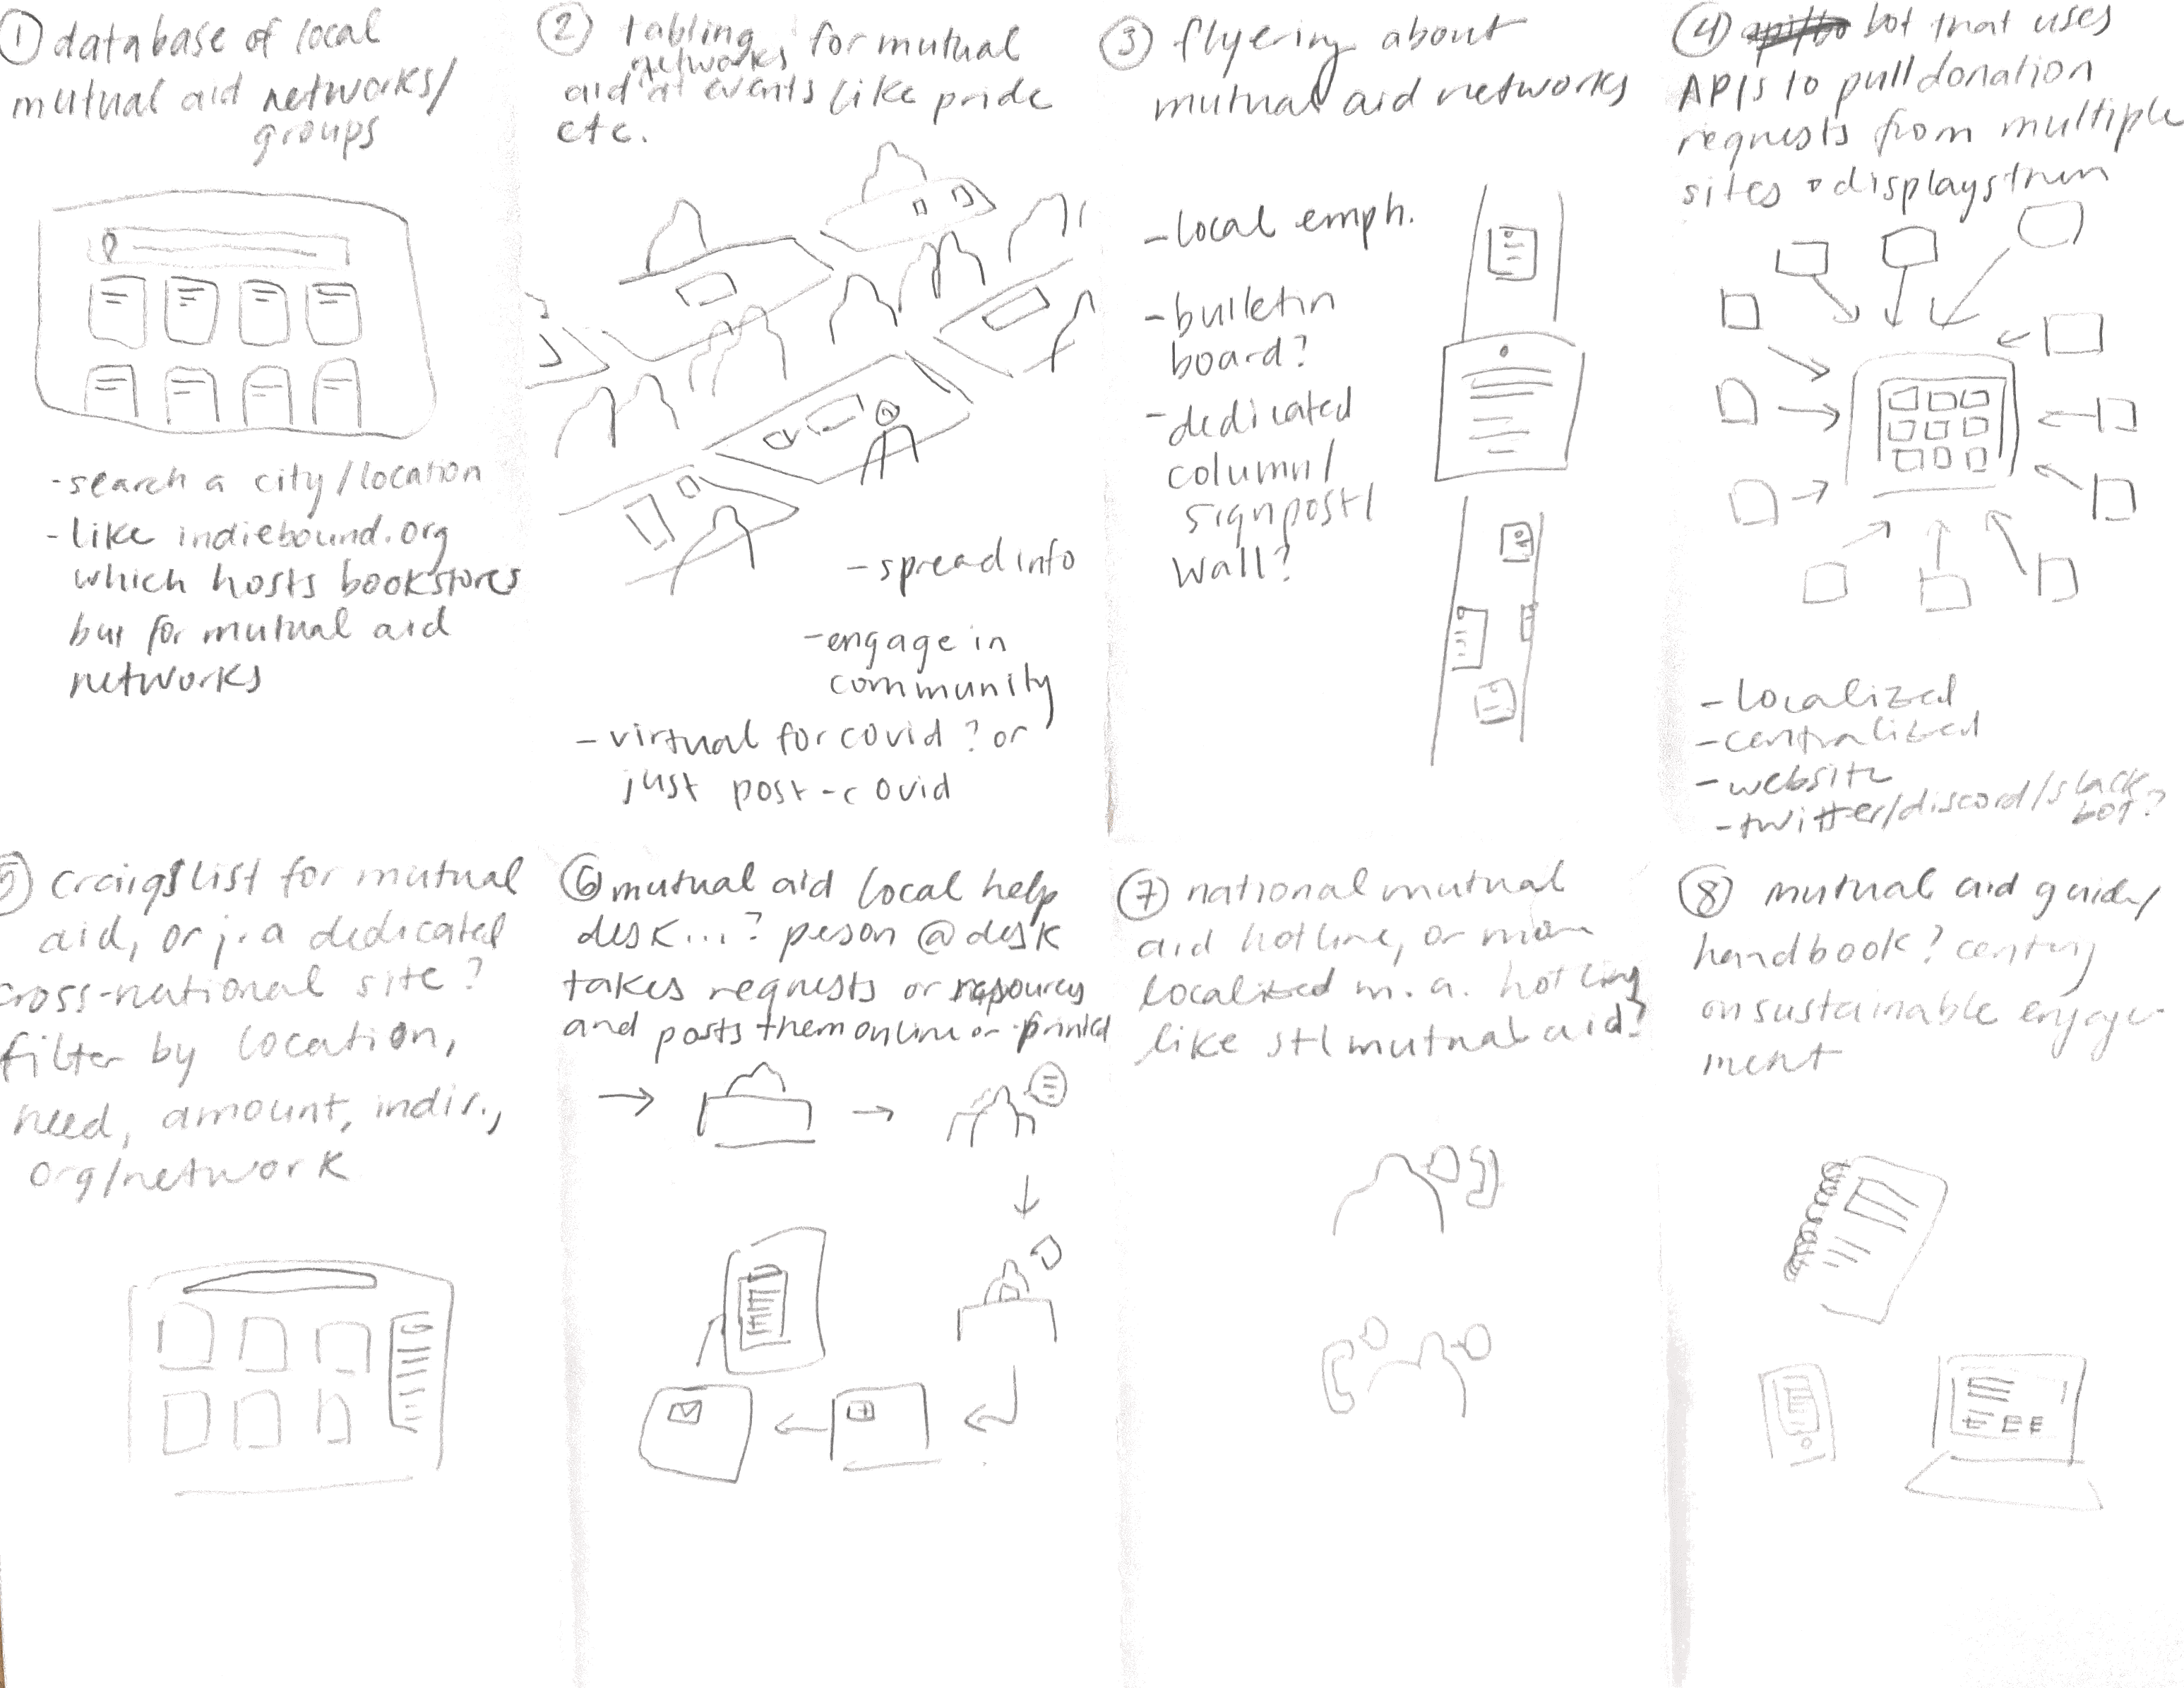 ① database of local
mutual aid networks/
groups
- search a city/location
- like indiebound.org
which hosts bookstores
but for mutual aid
networks
② tabling for mutual
networks
aid at events like pride
etc.
- spread info
- engage in
community
- virtual for covid? or
just post-covid
③ flyering about
mutual aid networks
- local emph.
- bulletin
board?
- dedicated
column/
signpost/
wall?
④ bot that uses
APIs to pull donation
requests from multiple
sites + displays them
- localized
- centralized
- website
- twitter/discord/slack
bot?
⑤ craigslist for mutual
aid, or j. a dedicated
cross-national site?
filter by location,
need, amount, indiv.,
org/network
⑥ mutual aid local help
desk...? person @ desk
takes requests or resources
and posts them online or printed
⑦ national mutual
aid hotline, or more
localized m.a. hotline
like stl mutual aid?
⑧ mutual aid guide/
handbook?
on sustainable engage-
ment